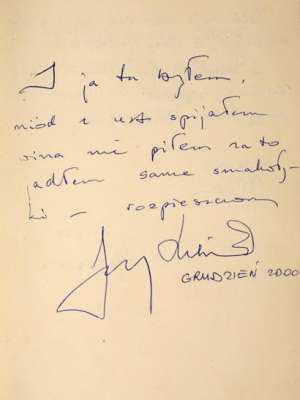 I ja tu byłem,
miód z ust spijałem
wina nie piłem za to
jadłem same smakoły-
ki – rozpieszczony
Jerzy
GRUDZIEŃ 2000